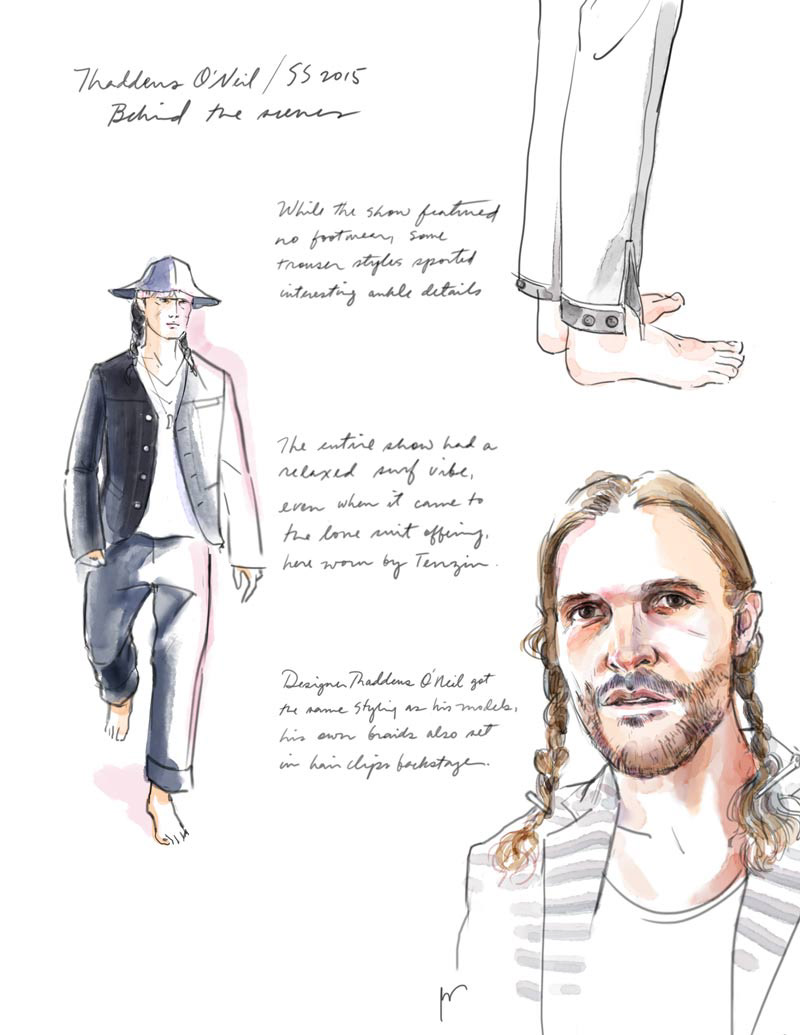 Thaddeus O'Neil / SS 2015
Behind the scenes
While the show featured
no footwear, some
trouser styles sported
interesting ankle details
The entire show had a
relaxed surf vibe,
even when it came to
the lone suit offering,
here worn by Tenzin.
Designer Thaddeus O'Neil got
the same styling as his models,
his own braids also set
in hair clips backstage.